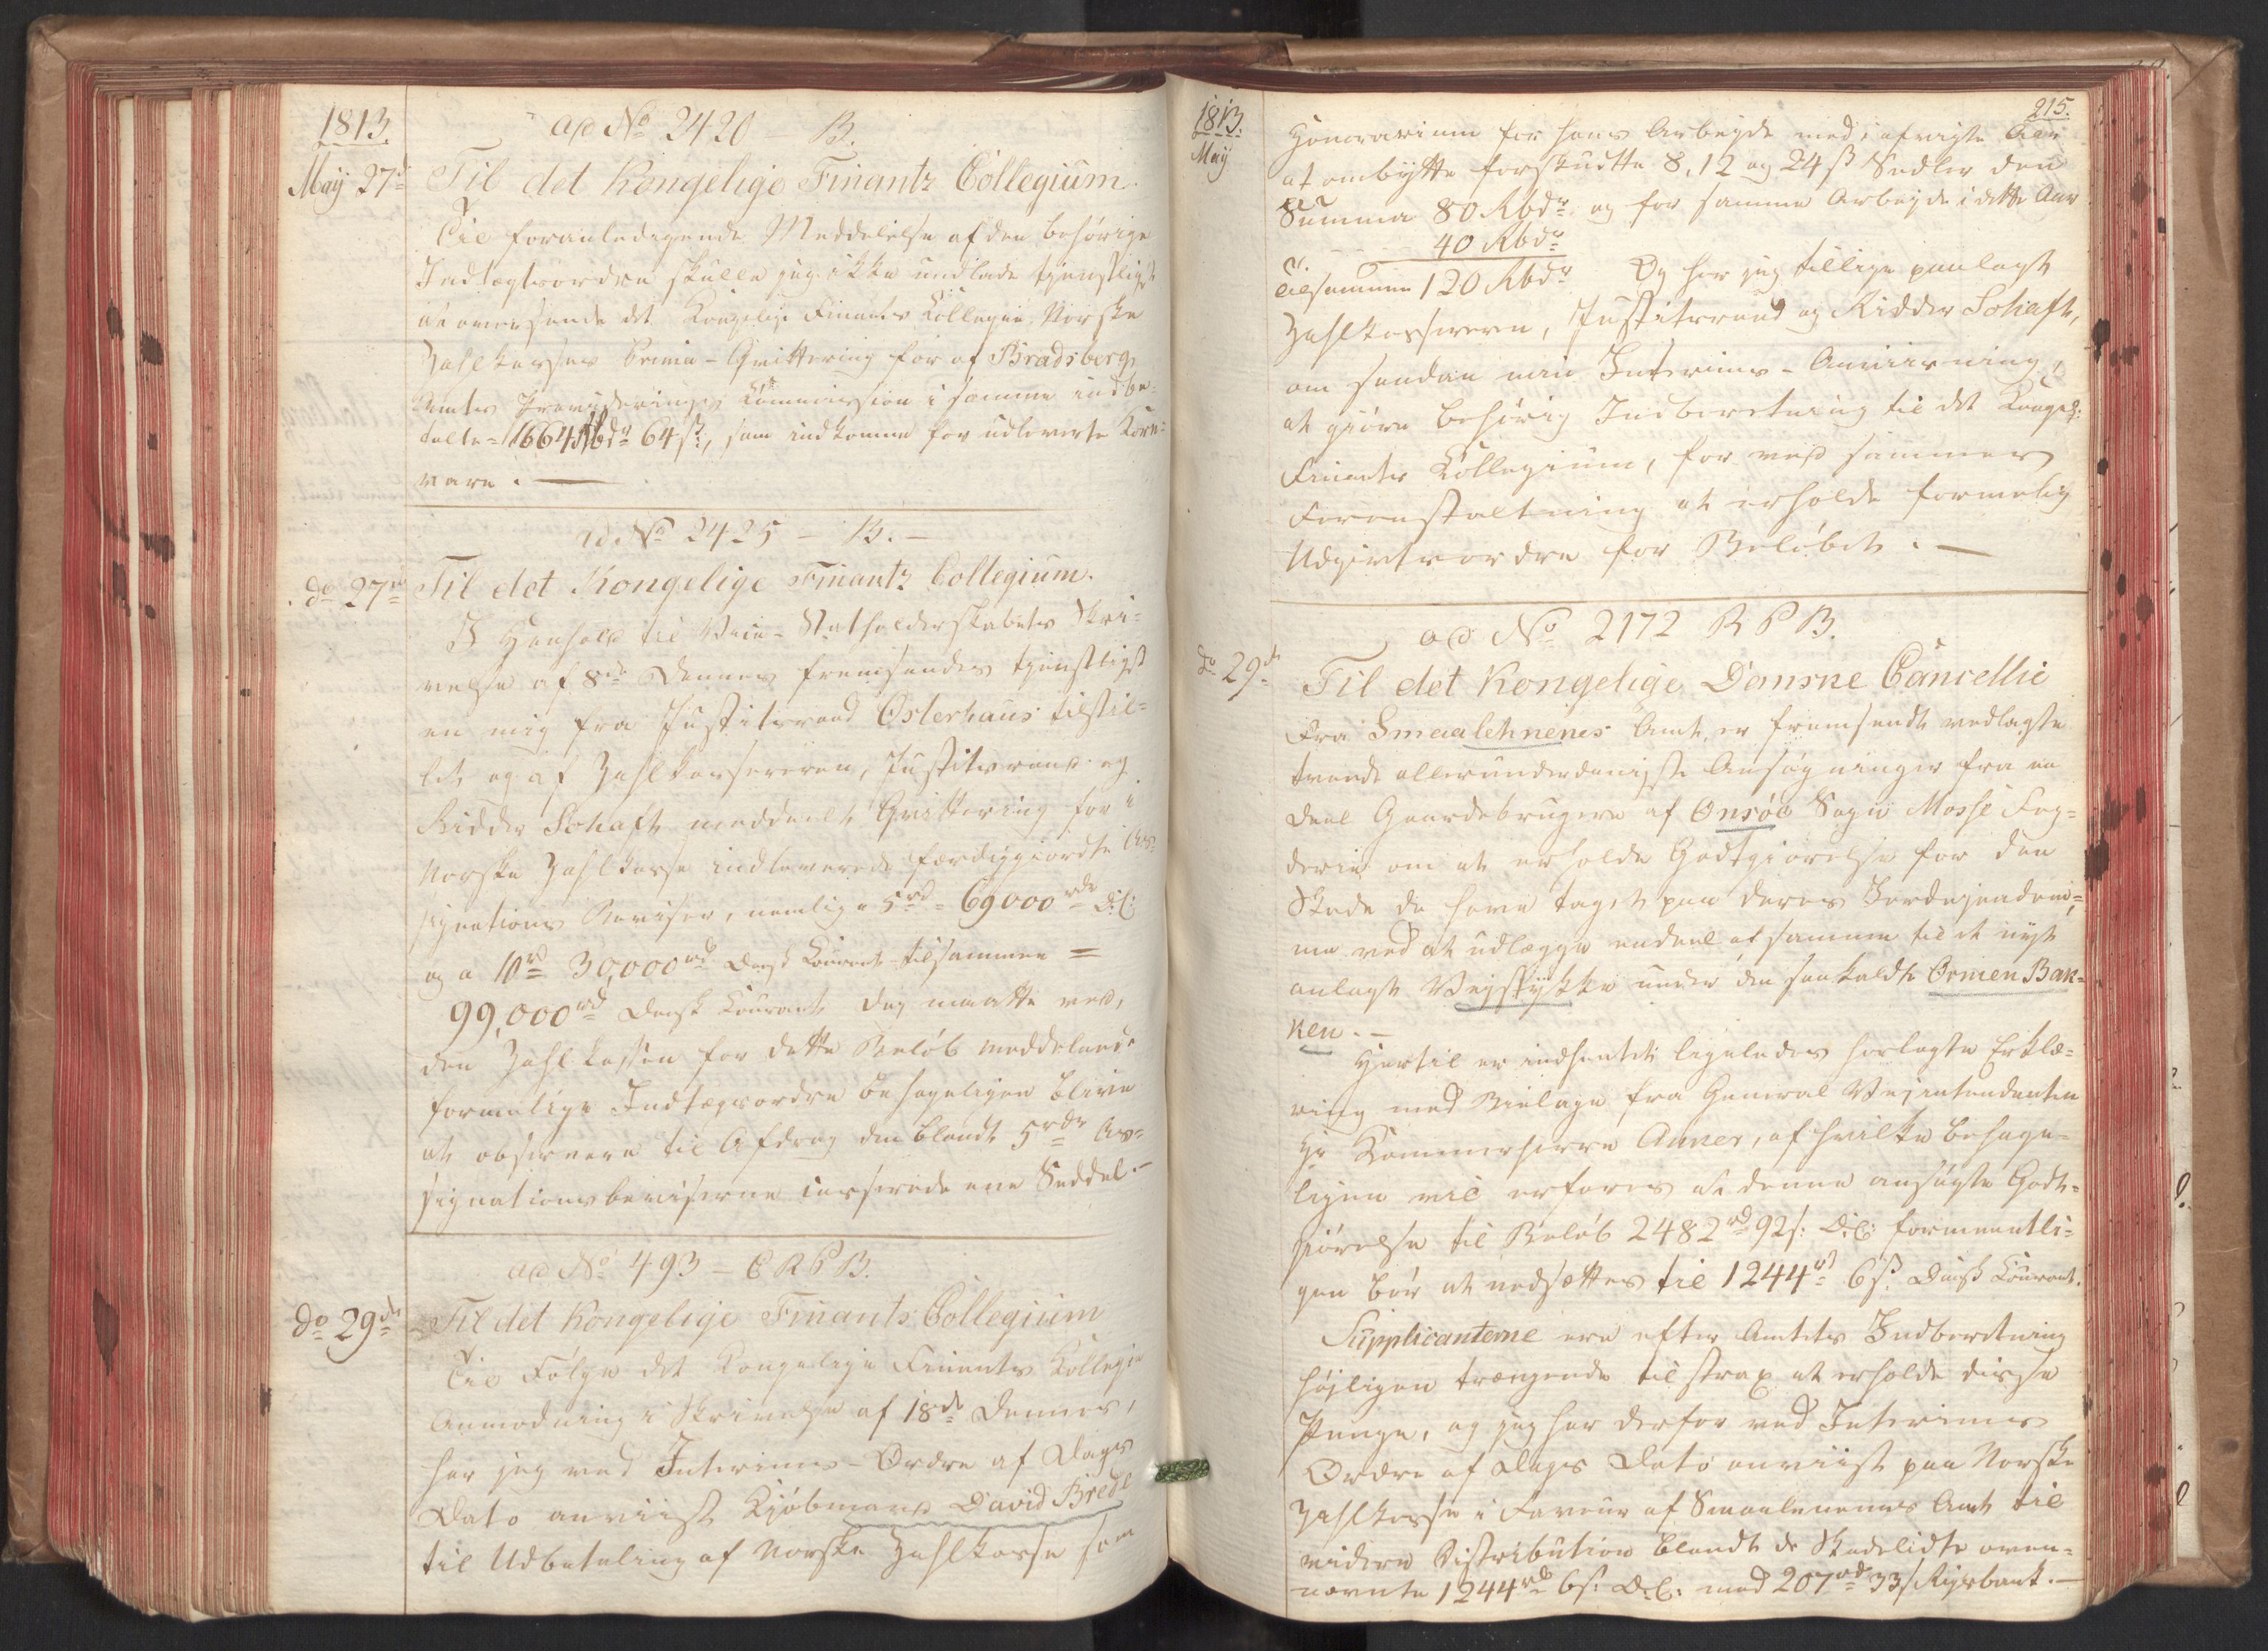 1813.
ad No 2420 B.
May 27de
Til det Kongelige Finantz Collegium.
Til foranledigende Meddelelse af den behørige
Indtægtsordre skulle jeg ikke undlade tjenstligst
at oversende det Kongelige Finants Collegie Norske
Zahlkasses Prima-Qvittering for af Bradsberg
Amts Provideringes Kommission i samme indbe-
talte = 11664 Rbdr 64 s:, som indkomne for udleverte Korn-
vare. —
ad No 2425 - B. -
do 27de
Til det Kongelige Finantz Collegium.
I Henhold til Vice-Statholderskabets Skri-
velse af 8de Dennes fremsendes tjenstligst
en mig fra Justitsraad Osterhaus tilstil-
let og af Zahlkassereren, Justitsraad og
Ridder Schaft meddeelt Qvittering for i
Norske Zahlkasse indleverede færdiggiordte As-
signations Beviser, nemlig a 5rd = 69000 rdr D.C:
og a 10rd 30,000rd Dansk Courant tilsammen =
99,000rd Dansk Courant. Dog maatte ved,
den Zahlkassen for dette Beløb meddelende
formelige Indtægtsordre behageligen blive
at observere til Afdrag den blandt 5rdr As-
signationsbeviserne casserede ene Seddel. —
ad No 493 - C R P B.
do 29de
Til det Kongelige Finants Collegium
Til Følge det Kongelige Finants Collegie
Anmodning i Skrivelse af 18de Dennes,
har jeg ved Interims-Ordre af Dags
Dato anviist Kjøbmand David Bredt
til Udbetaling af Norske Zahlkasse som
1813.
May
215.
Honorarium for hans Arbeyde med i afvigte Aar
at ombytte forskudte 8, 12 og 24 s Sedler den
Summa 80 Rbdr og for samme Arbeyde i dette Aar
40 Rbdr
Tilsammen 120 Rbdr Og har jeg tillige paalagt
Zahlkassereren, Justitsraad og Ridder Schaft,
om saadan min Interims-Anviisning,
at giøre behørig Indberetning til det Kongel:
Finants Collegium, for ved sammes
Foranstaltning at erholde formelig
Udgivtsordre for Beløbet. —
ad No 2172 R P B.
do 29de
Til det Kongelige Danske Cancellie
Fra Smaalehnenes Amt er fremsendt vedlagte
tvende allerunderdanigste Ansøgninger fra en
Deel Gaardebrugere af Onsøe Sogn Mosse Fog-
derie om at erholde Godtgiørelse for den
Skade de have taget paa deres Jordejendom-
me ved at udlægge endeel af samme til et nyt
anlagt Vejstykke under den saakaldte Ormen Bak-
ken. —
Hertil er indhentet ligeledes herlagte Erklæ-
ring med Bielage fra General Vejintendanten
Hr Kammerherre Anker, af hvilke behage-
ligen vil erfares at denne ansøgte Godt-
giørelse til Beløb 2482rd 92s: D.C: formeentli-
gen bør at nedsættes til 1244rd 6s. Dansk Courant.
Supplicanterne ere efter Amtets Indberetning
høiligen trængende til strax at erholde disse
Penge, og jeg har derfor ved Interims
Ordre af Dags Dato anviist paa Norske
Zahlkasse i Faveur af Smaalenenes Amt til
videre Distribution blandt de Skadelidte oven-
nævnte 1244rd 6s: D.C: med 207rd 33s Rigsbank. —